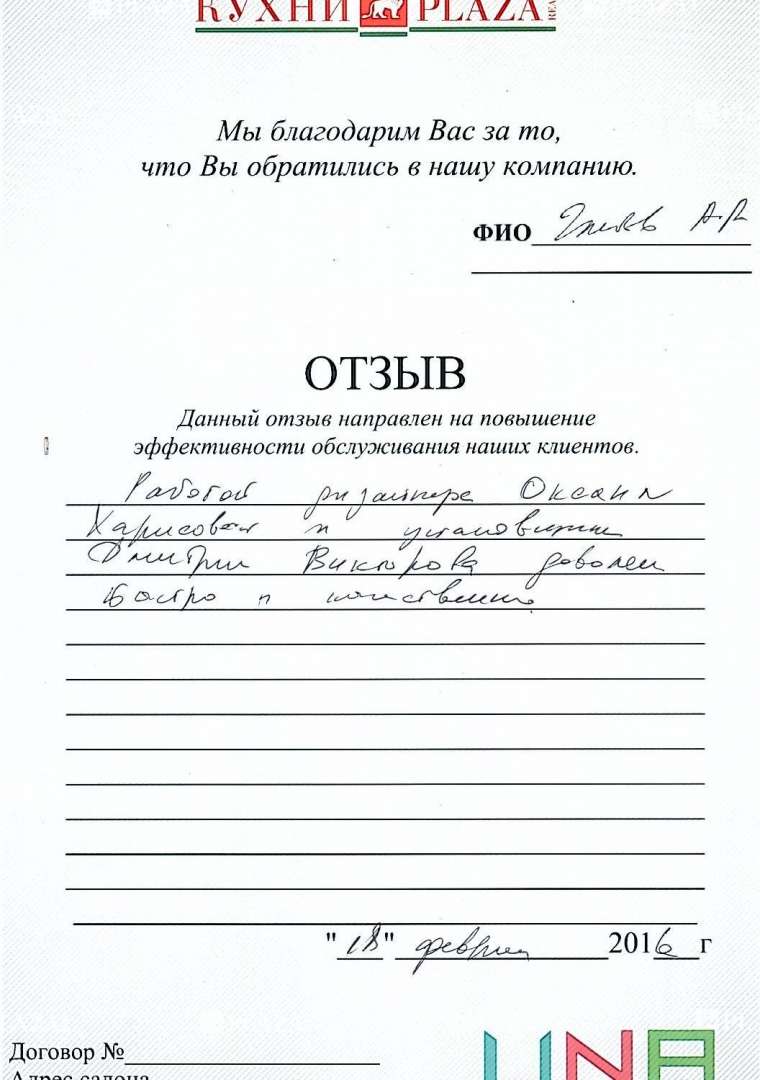 КУХНИ PLAZA
Мы благодарим Вас за то,
что Вы обратились в нашу компанию.
ФИО А.Р
ОТЗЫВ
Данный отзыв направлен на повышение
эффективности обслуживания наших клиентов.
Работой дизайнера Оксаны
Харисовой и установщика
Дмитрия Викторова доволен
Быстро и качественно
"18" февраля 2016 г
Договор №
Адрес салона
UNA